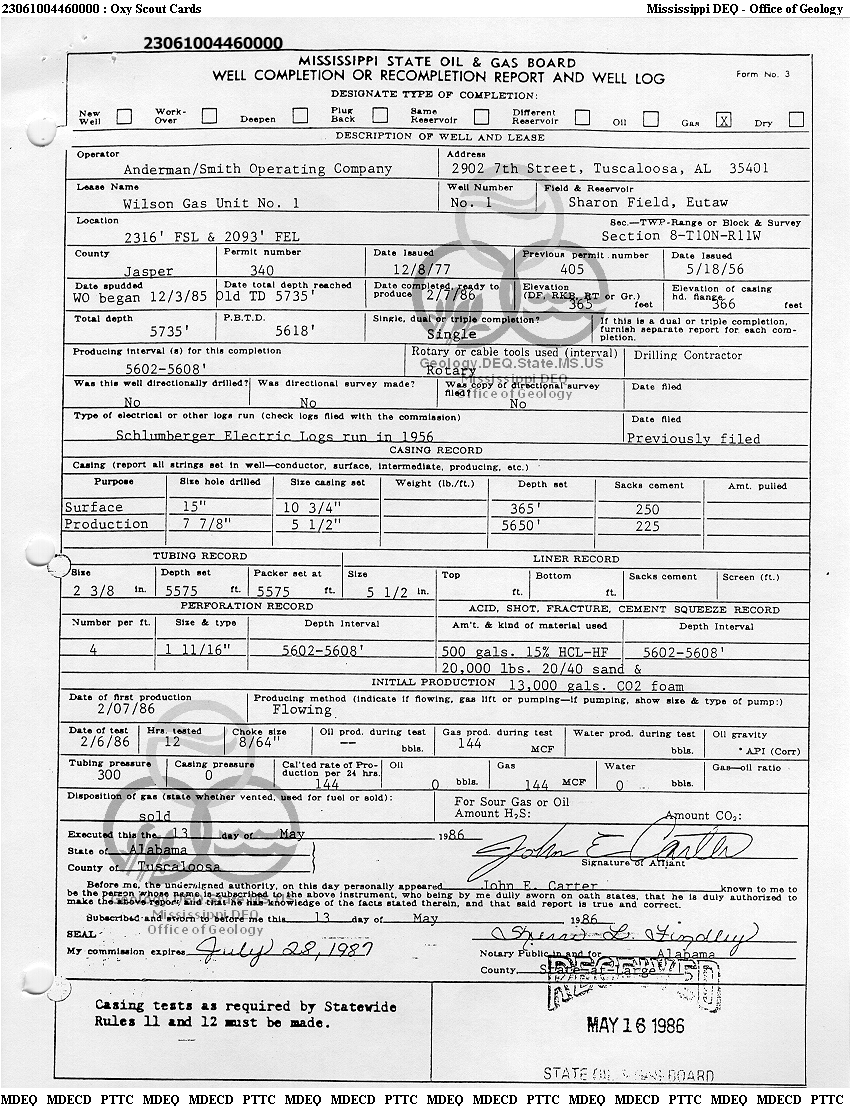 23061004460000 : Oxy Scout Cards Mississippi DEQ - Office of Geology
23061004460000
MISSISSIPPI STATE OIL & GAS BOARD
WELL COMPLETION OR RECOMPLETION REPORT AND WELL LOG Form No. 3
DESIGNATE TYPE OF COMPLETION:
New Well Work-Over Deepen Plug Back Same Reservoir Different Reservoir Oil Gas X Dry
DESCRIPTION OF WELL AND LEASE
Operator Address
Anderman/Smith Operating Company 2902 7th Street, Tuscaloosa, AL 35401
Lease Name Well Number Field & Reservoir
Wilson Gas Unit No. 1 No. 1 Sharon Field, Eutaw
Location Sec.—TWP-Range or Block & Survey
2316' FSL & 2093' FEL Section 8-T10N-R11W
County Permit number Date Issued Previous permit number Date Issued
Jasper 340 12/8/77 405 5/18/56
Date spudded Date total depth reached Date completed, ready to produce Elevation (DF, RKB, RT or Gr.) Elevation of casing hd. flange
WO began 12/3/85 Old TD 5735' 2/7/86 365 feet 366 feet
Total depth P.B.T.D. Single, dual or triple completion? If this is a dual or triple completion, furnish separate report for each completion.
5735' 5618' Single
Producing interval (s) for this completion Rotary or cable tools used (interval) Drilling Contractor
5602-5608' Rotary
Geology.DEQ.State.MS.US
Mississippi DEQ
Office of Geology
Was this well directionally drilled? Was directional survey made? Was copy of directional survey filed? Date filed
No No No
Type of electrical or other logs run (check logs filed with the commission) Date filed
Schlumberger Electric Logs run in 1956 Previously filed
CASING RECORD
Casing (report all strings set in well—conductor, surface, intermediate, producing, etc.)
Purpose Size hole drilled Size casing set Weight (lb./ft.) Depth set Sacks cement Amt. pulled
Surface 15" 10 3/4" 365' 250
Production 7 7/8" 5 1/2" 5650' 225
TUBING RECORD LINER RECORD
Size Depth set Packer set at Size Top Bottom Sacks cement Screen (ft.)
2 3/8 in. 5575 ft. 5575 ft. 5 1/2 in. ft. ft.
PERFORATION RECORD ACID, SHOT, FRACTURE, CEMENT SQUEEZE RECORD
Number per ft. Size & type Depth Interval Am't. & kind of material used Depth Interval
4 1 11/16" 5602-5608' 500 gals. 15% HCL-HF 5602-5608'
20,000 lbs. 20/40 sand &
INITIAL PRODUCTION 13,000 gals. CO2 foam
Date of first production Producing method (indicate if flowing, gas lift or pumping—if pumping, show size & type of pump:)
2/07/86 Flowing
Date of test Hrs. tested Choke size Oil prod. during test Gas prod. during test Water prod. during test Oil gravity
2/6/86 12 8/64" -- bbls. 144 MCF bbls. ° API (Corr)
Tubing pressure Casing pressure Cal'ted rate of Production per 24 hrs. Oil Gas Water Gas—oil ratio
300 0 144 0 bbls. 144 MCF 0 bbls.
Disposition of gas (state whether vented, used for fuel or sold): For Sour Gas or Oil
sold Amount H2S: Amount CO2:
Executed this the 13 day of May 1986 John E Carter
State of Alabama Signature of Affiant
County of Tuscaloosa
Before me, the undersigned authority, on this day personally appeared John E. Carter known to me to
be the person whose name is subscribed to the above instrument, who being by me duly sworn on oath states, that he is duly authorized to
make the above report and that he has knowledge of the facts stated therein, and that said report is true and correct.
Subscribed and sworn to before me this 13 day of May 1986
Mississippi DEQ
Office of Geology
SEAL Sherri L. Findley
My commission expires July 28, 1987 Notary Public in and for Alabama
County, State-at-Large
RECEIVED
Casing tests as required by Statewide
Rules 11 and 12 must be made.
MAY 16 1986
STATE OIL & GAS BOARD
MDEQ MDECD PTTC MDEQ MDECD PTTC MDEQ MDECD PTTC MDEQ MDECD PTTC MDEQ MDECD PTTC MDEQ MDECD PTTC